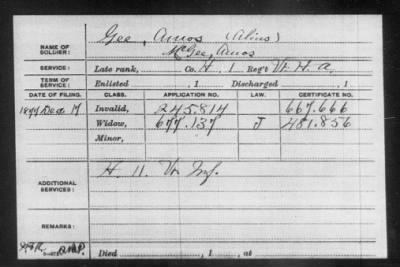 Gee, Amos (Alias)
NAME OF SOLDIER: McGee, Amos
SERVICE: Late rank, Co. H, 1 Reg't Vt. H. A.
TERM OF SERVICE: Enlisted , 1 Discharged , 1
DATE OF FILING. CLASS. APPLICATION NO. LAW. CERTIFICATE NO.
1877 Dec 17 Invalid, 245.814 667.666
Widow, 677.137 J 481.856
Minor,
ADDITIONAL SERVICES: H 11 Vt. Inf.
REMARKS:
Died , 1 , at